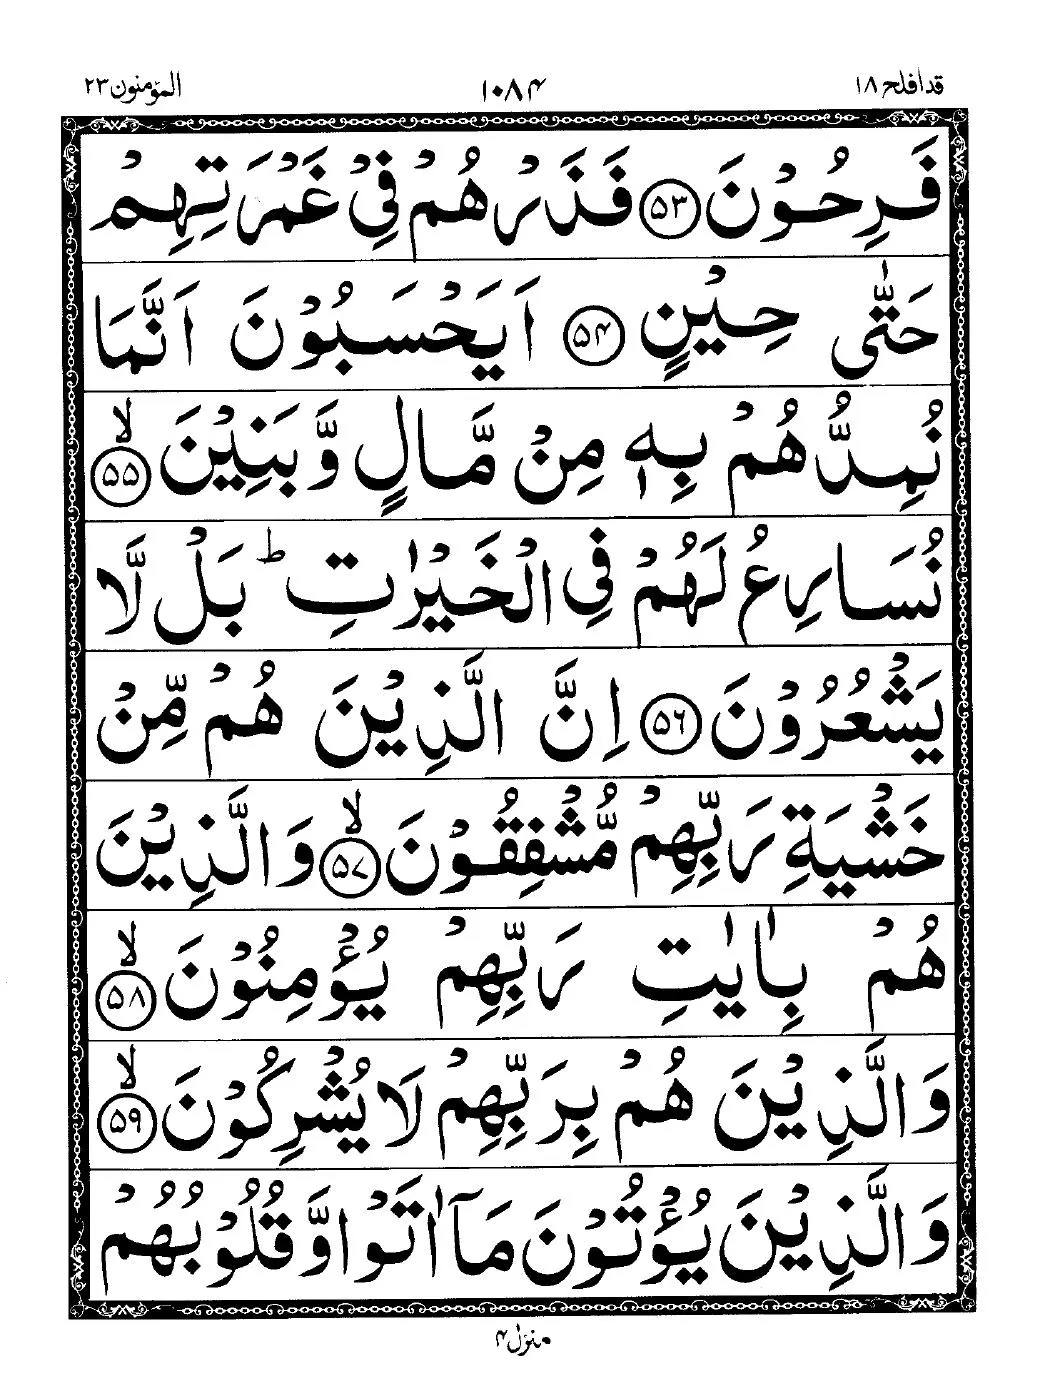 قدافلح ۱۸ ۱۰۸۴ المؤمنون ۲۳
فَرِحُوْنَ ۵۳ فَذَرْهُمْ فِيْ غَمْرَتِهِمْ
حَتّٰى حِيْنٍ ۵۴ اَيَحْسَبُوْنَ اَنَّمَا
نُمِدُّهُمْ بِهٖ مِنْ مَّالٍ وَّبَنِيْنَ ۙ ۵۵
نُسَارِعُ لَهُمْ فِي الْخَيْرٰتِ ؕ بَلْ لَّا
يَشْعُرُوْنَ ۵۶ اِنَّ الَّذِيْنَ هُمْ مِّنْ
خَشْيَةِ رَبِّهِمْ مُّشْفِقُوْنَ ۙ ۵۷ وَالَّذِيْنَ
هُمْ بِاٰيٰتِ رَبِّهِمْ يُؤْمِنُوْنَ ۙ ۵۸
وَالَّذِيْنَ هُمْ بِرَبِّهِمْ لَا يُشْرِكُوْنَ ۙ ۵۹
وَالَّذِيْنَ يُؤْتُوْنَ مَآ اٰتَوْا وَّقُلُوْبُهُمْ
منزل ۴